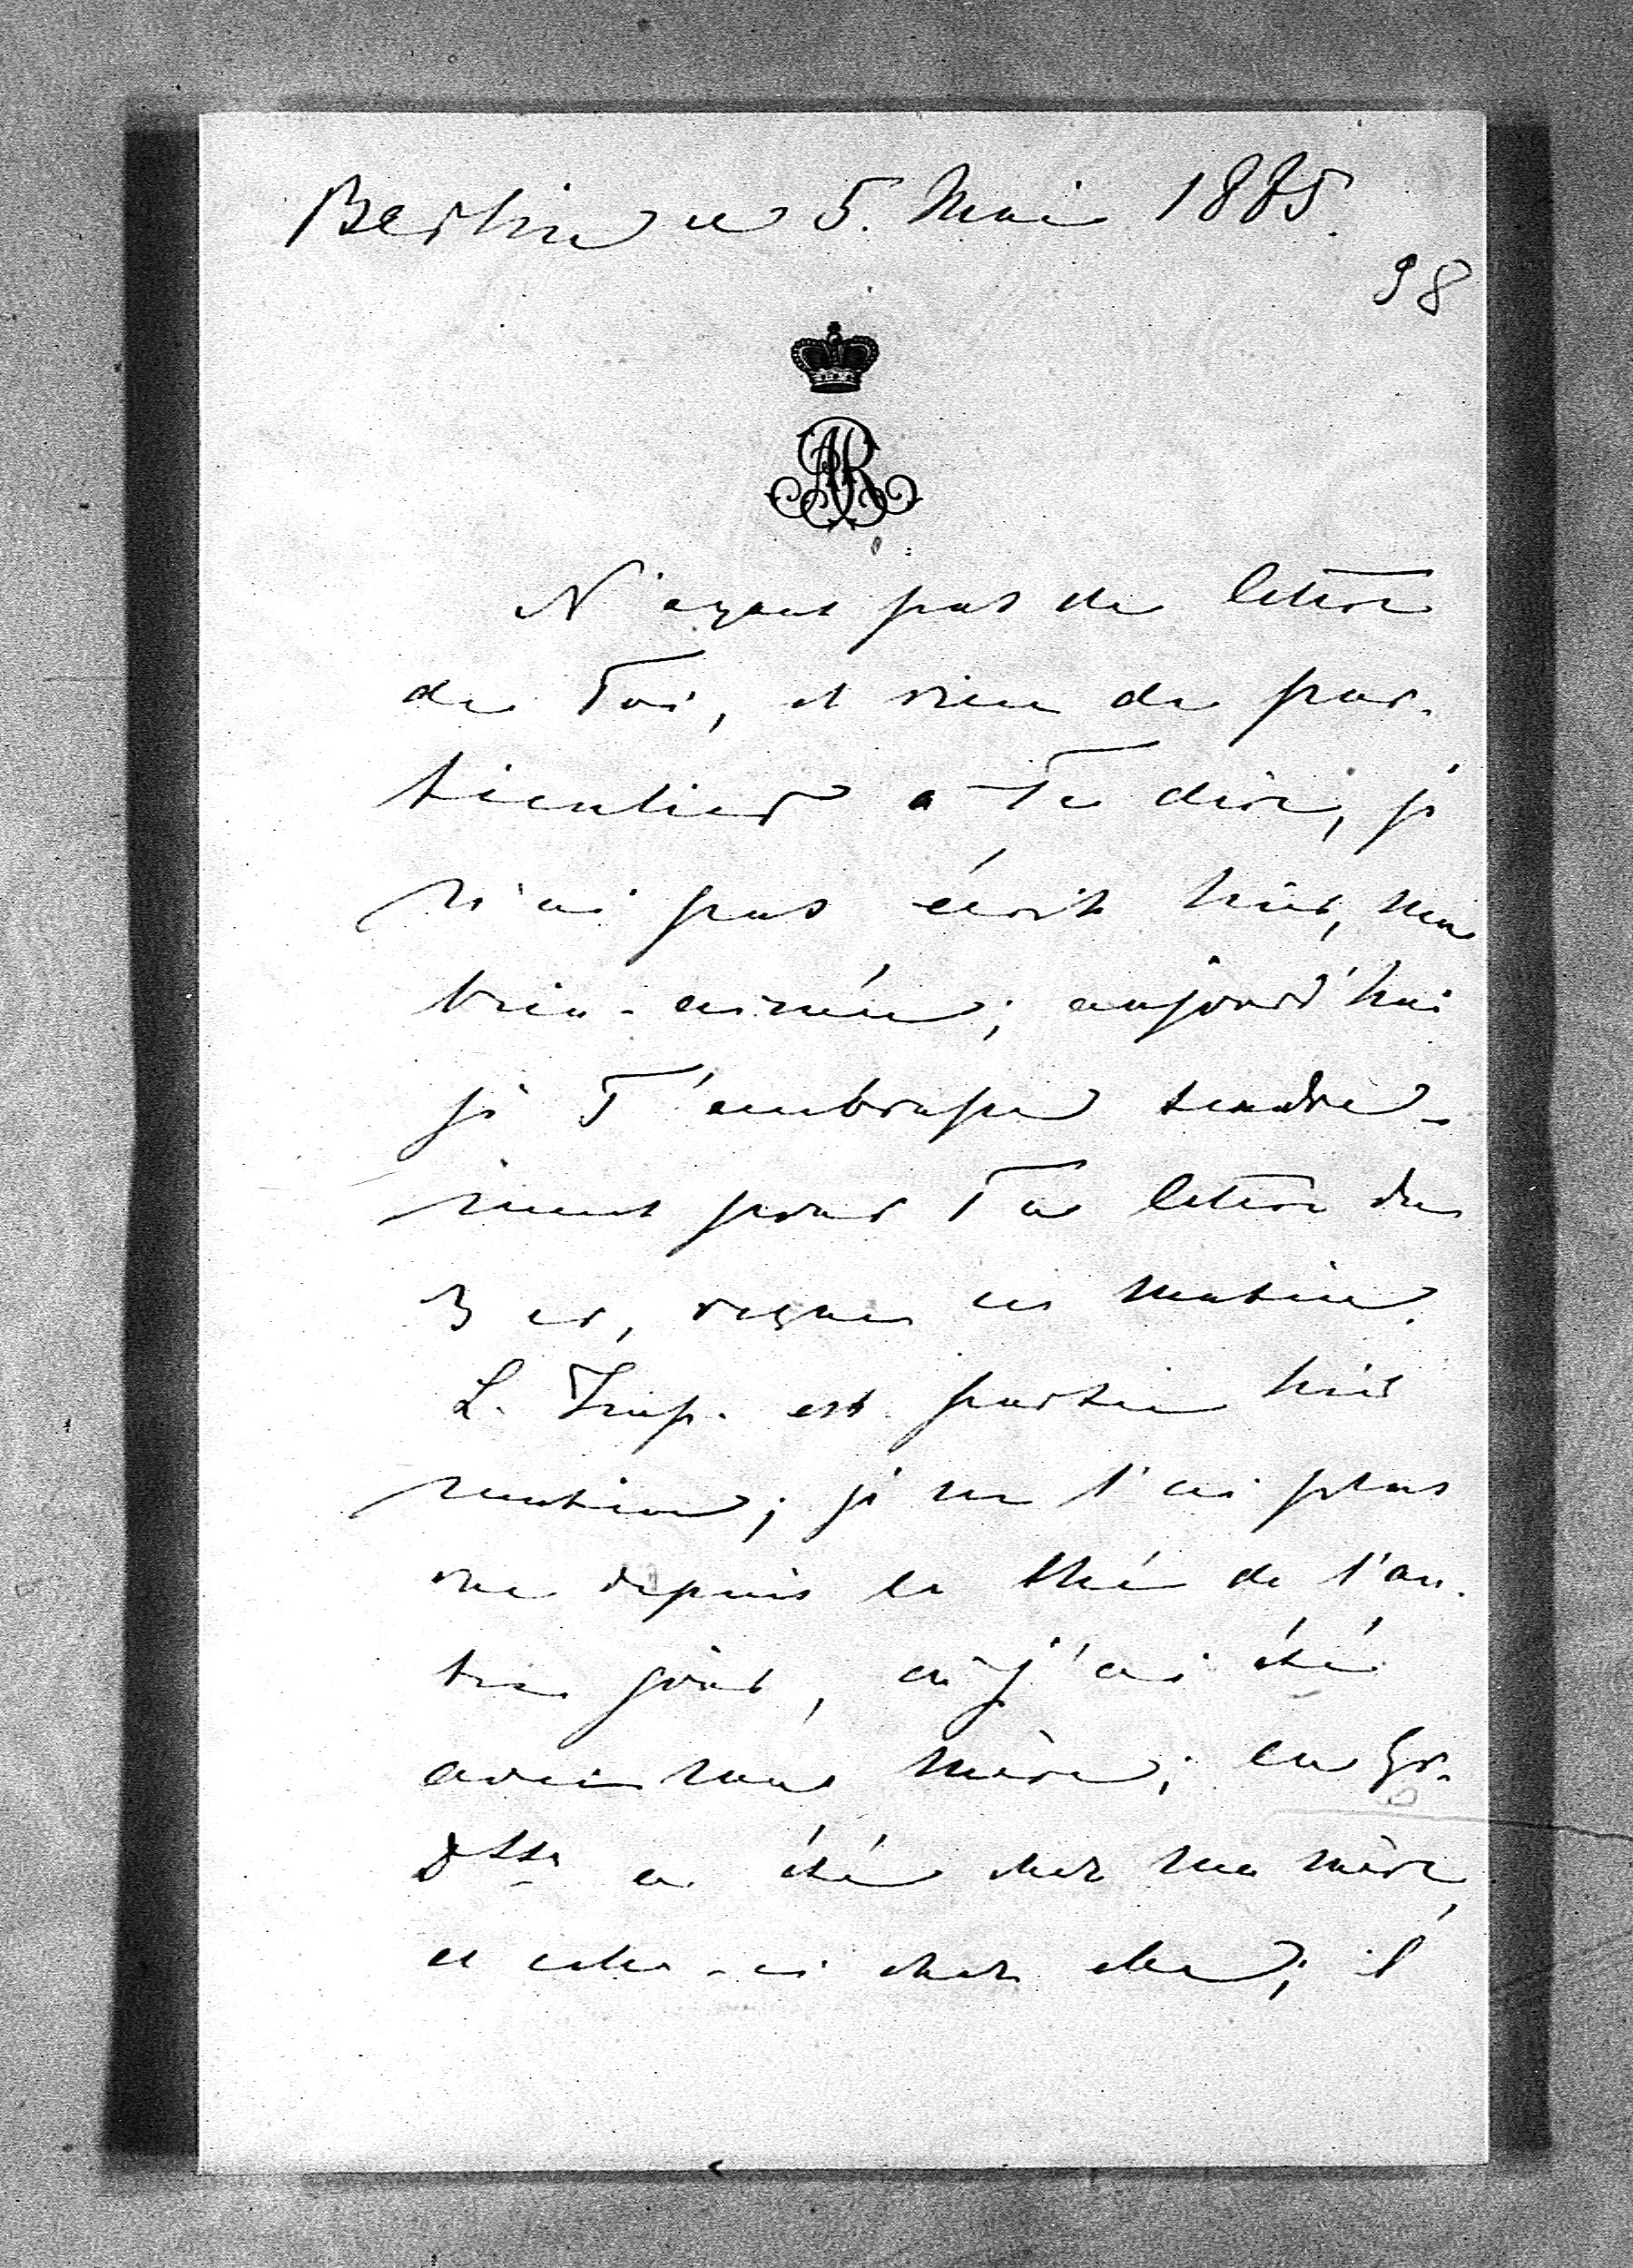 Berlin ce 5. Mai 1885.
98
AR
N'ayant pas de lettre
de Toi, et rien de par-
ticulier a Te dire, je
n'ai pas écrit hier, ma
bien-aimée; aujourd'hui
je T'embrasse tendre-
ment pour Ta lettre du
3 er, reçue ce matin.
L. Imp. est partie hier
matin; je ne l'ai plus
vue depuis le thé de l'au-
tre jour, où j'ai été
avec ma mère; la Gr.
Dsse a été chez ma mère,
et celle-ci chez elle; il